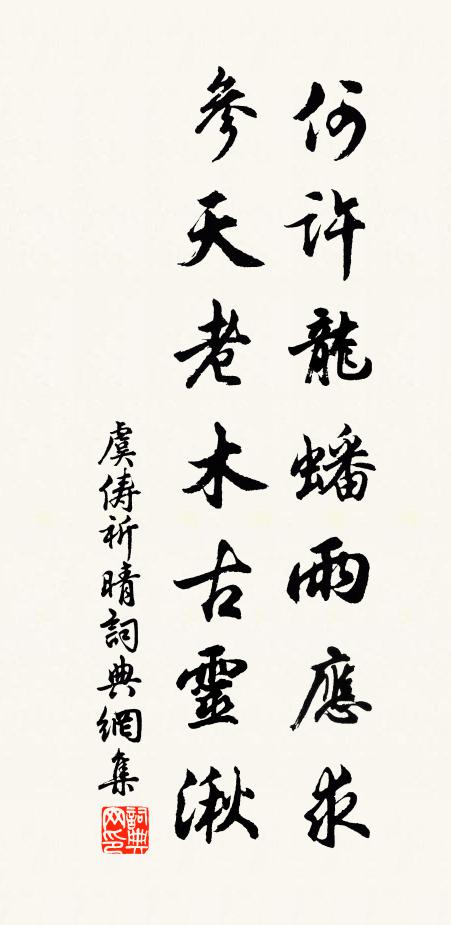 何許龍蟠雨應求
參天老木古靈湫
虞儔祈晴詞典網集
詞典網印